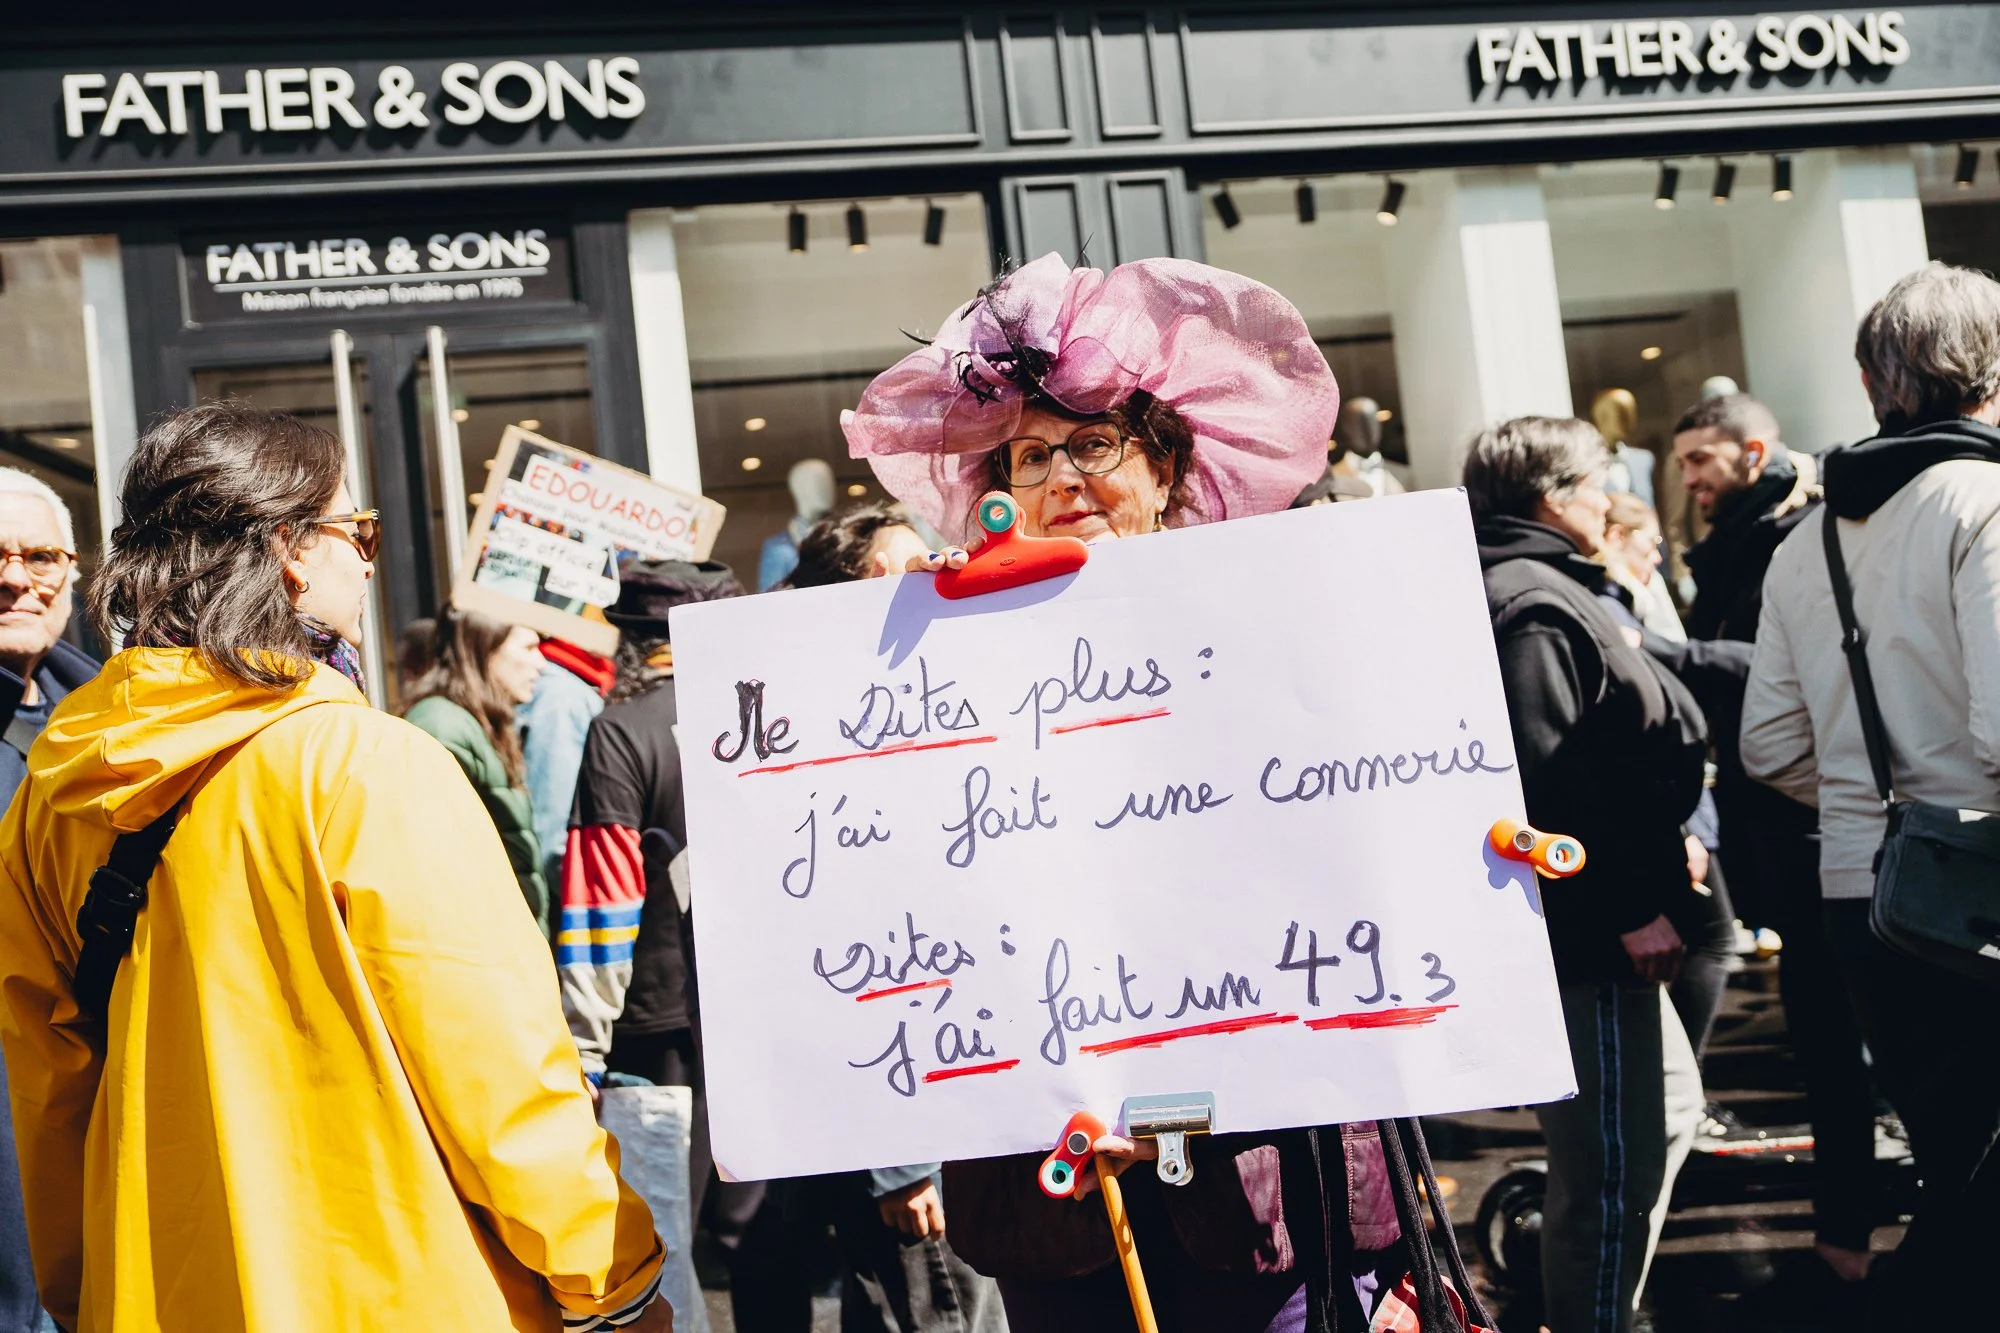 FATHER & SONS
FATHER & SONS
FATHER & SONS
Maison française fondée en 1995
EDOUARDO
Clip officiel
sur Yo
Ne Dites plus :
j'ai fait une connerie
Dites :
j'ai fait un 49.3